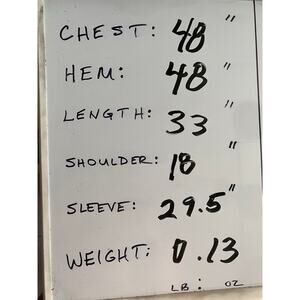 CHEST: 48"
HEM: 48"
LENGTH: 33"
SHOULDER: 18"
SLEEVE: 29.5"
WEIGHT: 0.13
LB : OZ